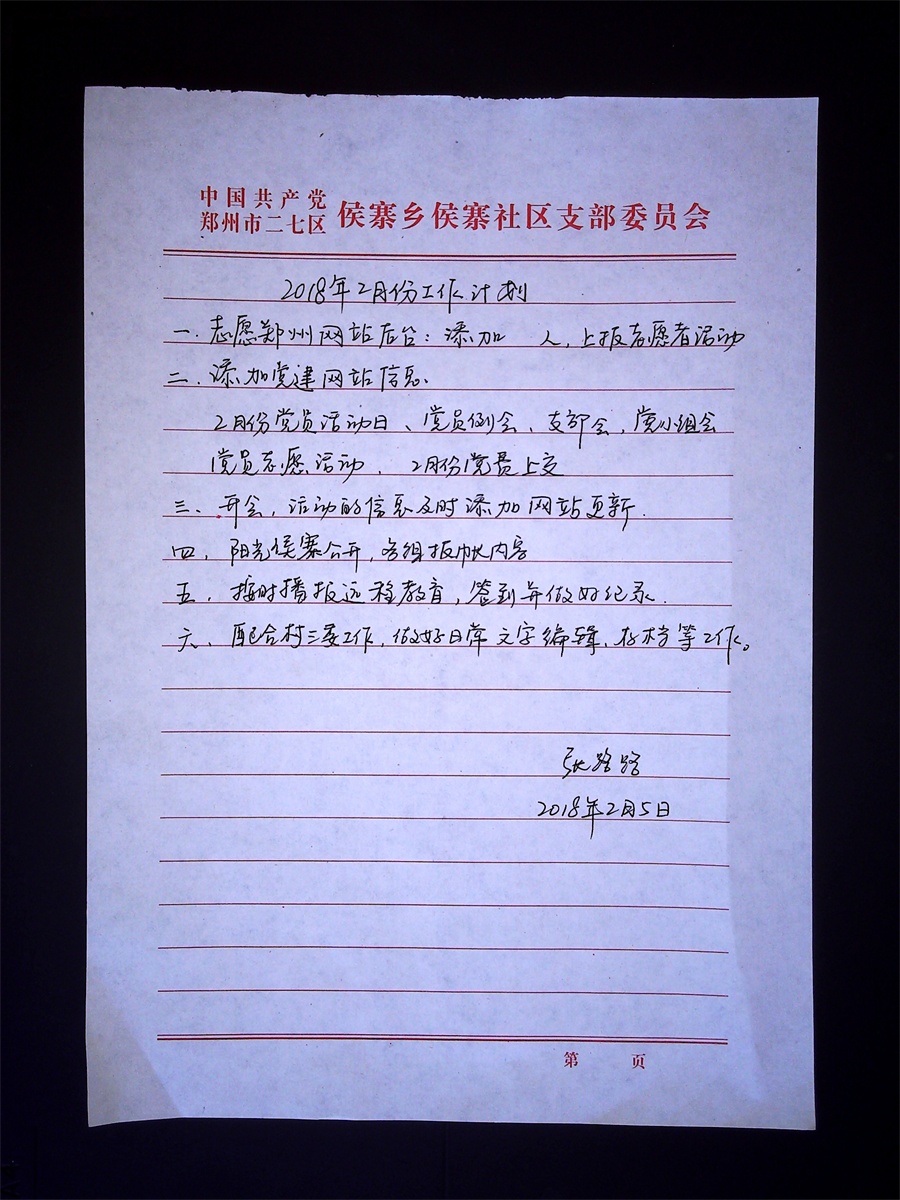 中国共产党
郑州市二七区 侯寨乡侯寨社区支部委员会
2018年2月份工作计划
一.志愿郑州网站后台：添加 人，上报志愿者活动
二.添加党建网站信息.
2月份党员活动日、党员例会、支部会，党小组会
党员志愿活动. 2月份党费上交
三、开会，活动的信息及时添加网站更新.
四，阳光侯寨公开，各组报帐内容
五.按时播报远程教育，签到并做好纪录.
六、配合村三委工作，做好日常文字编辑、存档等工作。
张路路
2018年2月5日
第 页